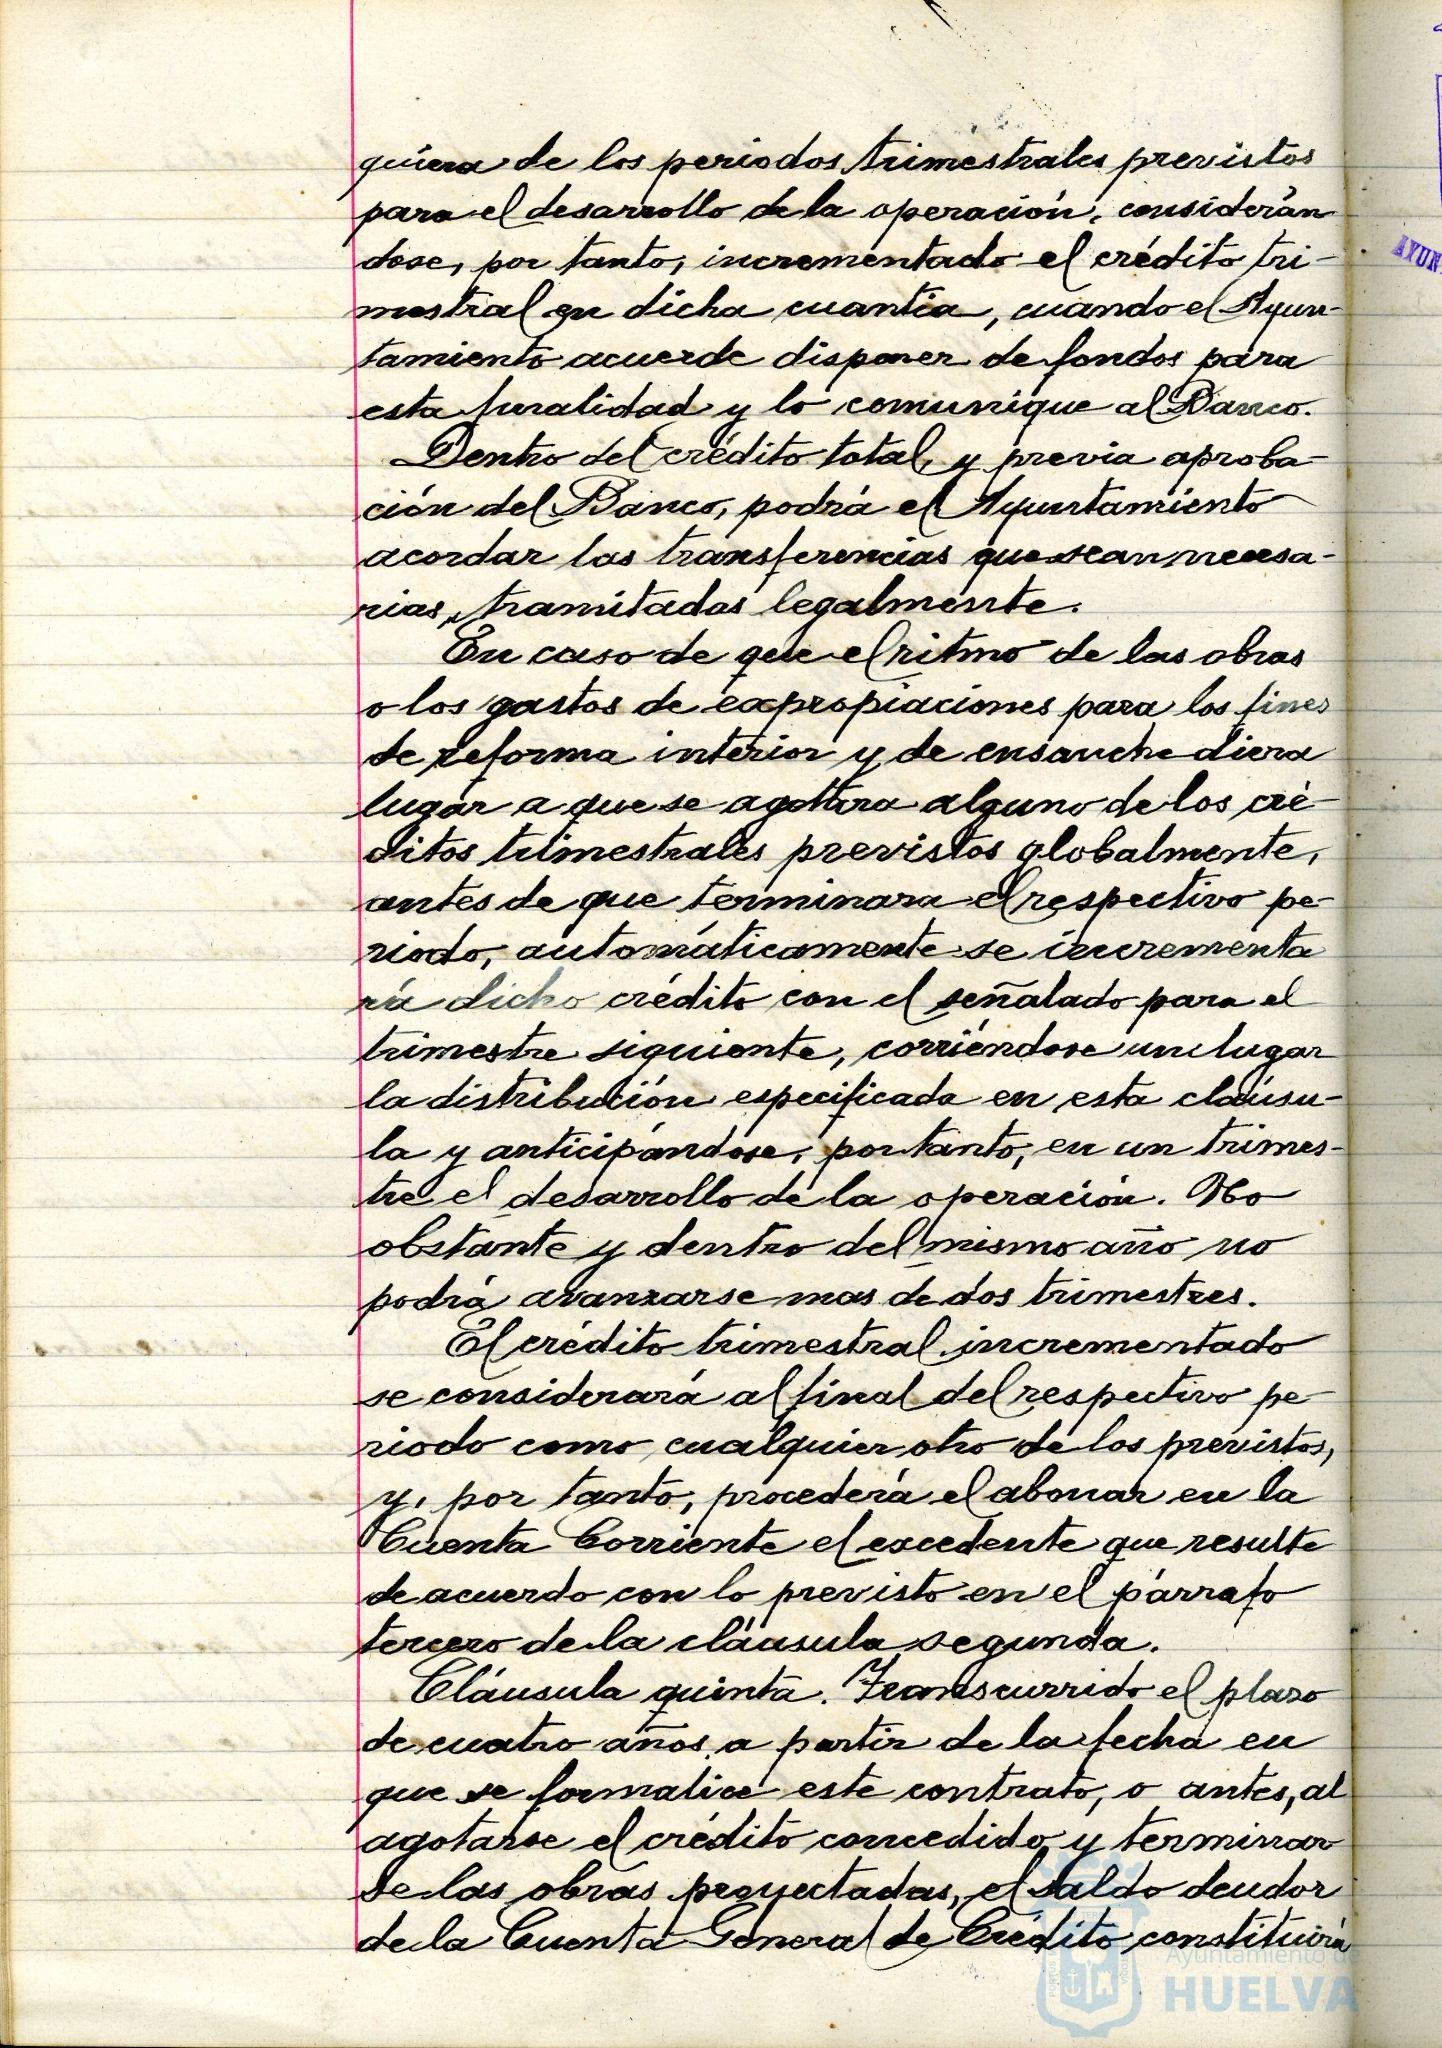 quiera de los periodos trimestrales previstos
para el desarrollo de la operación, considerán
dose, por tanto, incrementado el crédito tri-
mestral en dicha cuantía, cuando el Ayun-
tamiento acuerde disponer de fondos para
esta finalidad y lo comunique al Banco.
Dentro del crédito total, y previa aproba-
ción del Banco, podrá el Ayuntamiento
acordar las transferencias que sean necesa-
rias, tramitadas legalmente.
En caso de que el ritmo de las obras
o los gastos de expropiaciones para los fines
de reforma interior y de ensanche diera
lugar a que se agotara alguno de los cré-
ditos trimestrales previstos globalmente,
antes de que terminara el respectivo pe-
riodo, automáticamente se incrementa
rá dicho crédito con el señalado para el
trimestre siguiente, corriéndose un lugar
la distribución especificada en esta cláusu-
la y anticipándose, por tanto, en un trimes-
tre el desarrollo de la operación. No
obstante y dentro del mismo año no
podrá avanzarse mas de dos trimestres.
El crédito trimestral incrementado
se considerará al final del respectivo pe-
riodo como cualquier otro de los previstos,
y, por tanto, procederá el abonar en la
Cuenta Corriente el excedente que resulte
de acuerdo con lo previsto en el párrafo
tercero de la cláusula segunda.
Cláusula quinta. Transcurrido el plazo
de cuatro años, a partir de la fecha en
que se formalice este contrato, o antes, al
agotarse el crédito concedido y terminar
se las obras proyectadas, el saldo deudor
de la Cuenta General de Crédito constituirá
AYUN
Ayuntamiento de
HUELVA